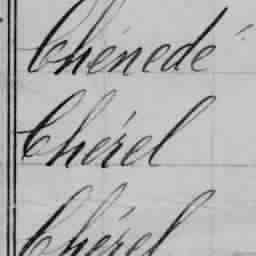 Chénedé
Chérel
Chérel